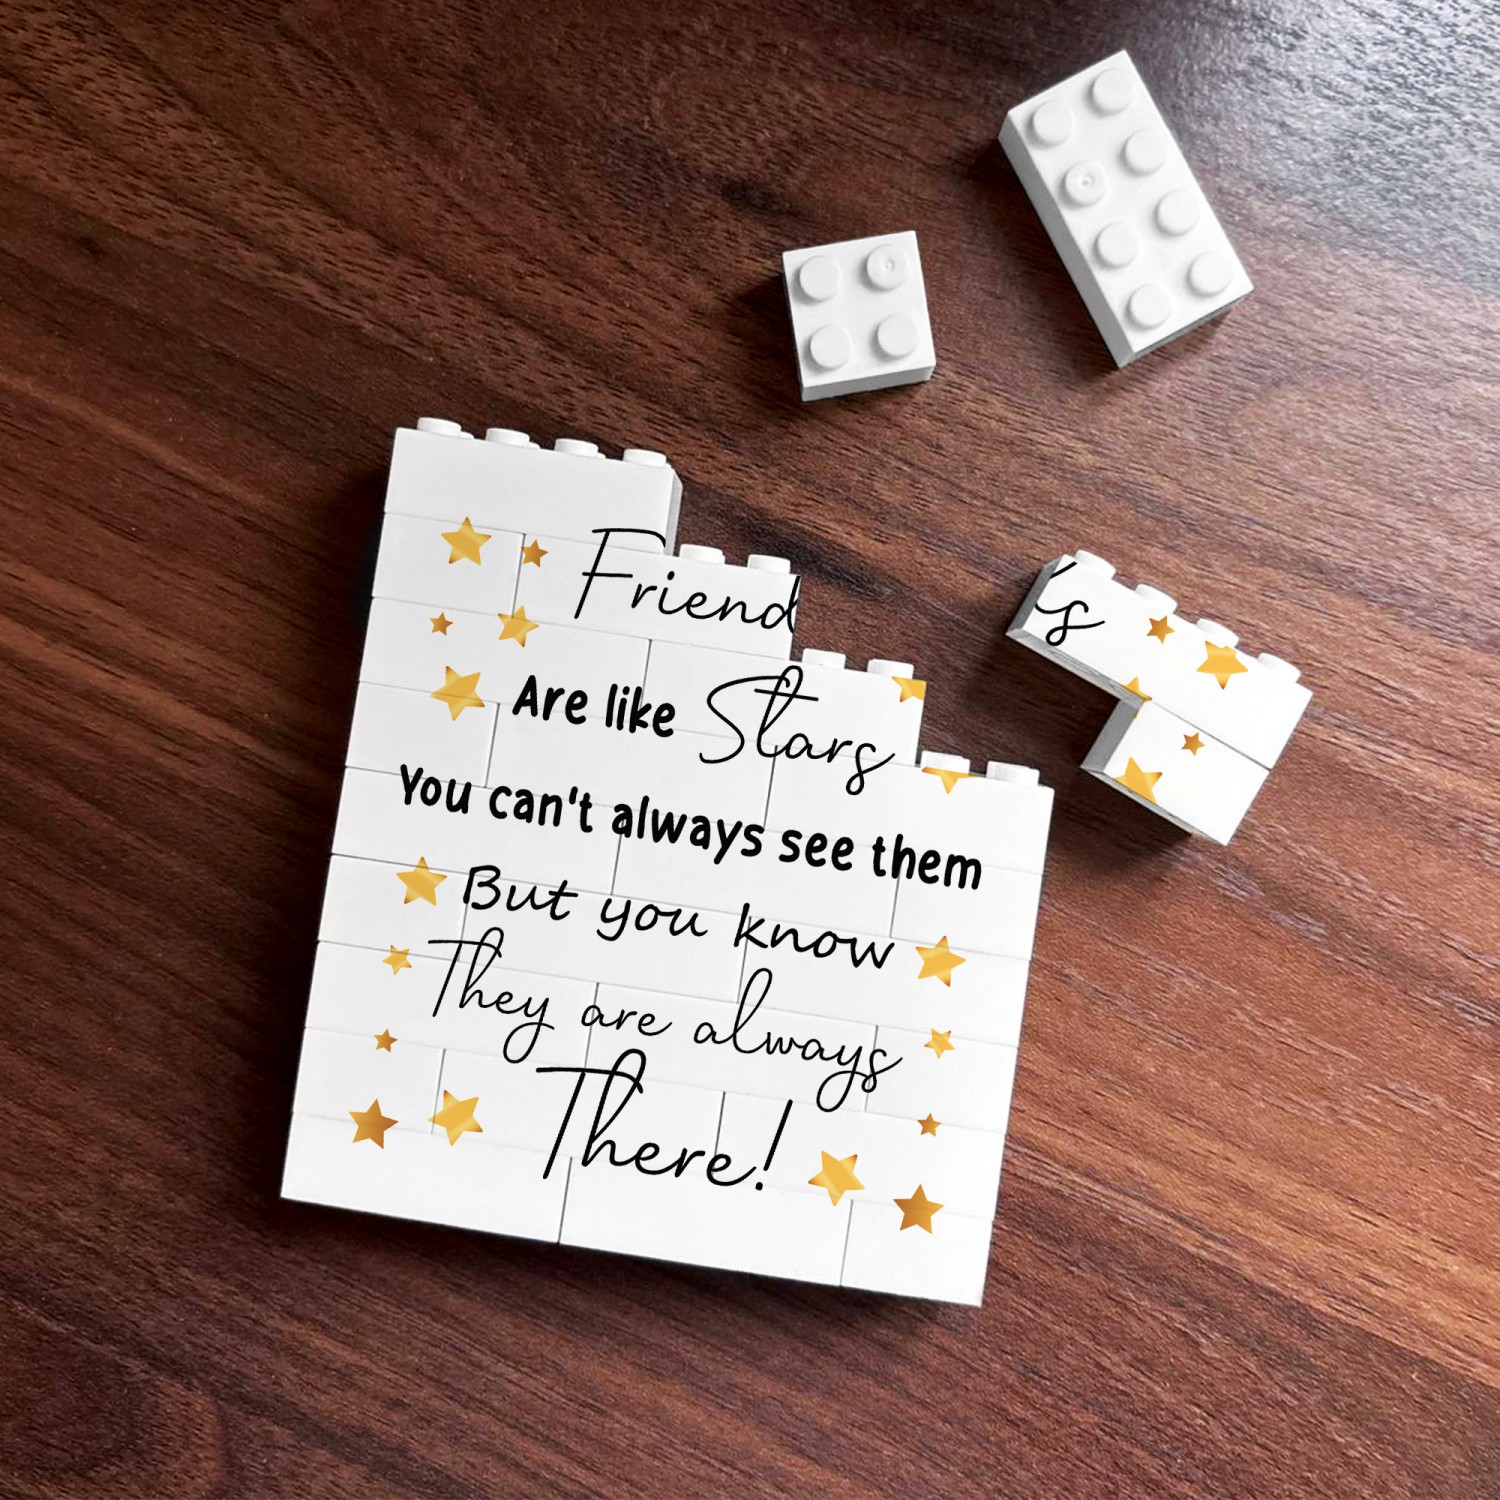 Friends
Are like Stars
You can't always see them
But you know
They are always
There!